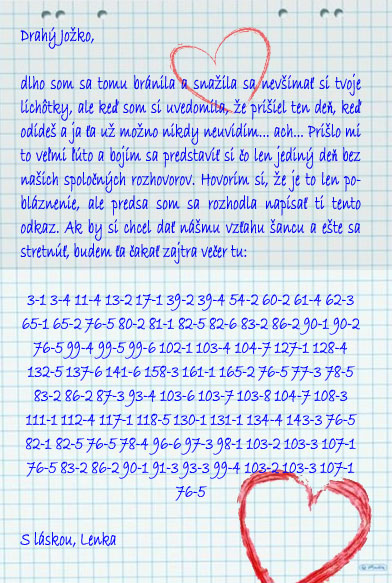 Drahý Jožko,
dlho som sa tomu bránila a snažila sa nevšímať si tvoje
lichôtky, ale keď som si uvedomila, že prišiel ten deň, keď
odídeš a ja ťa už možno nikdy neuvidím... ach... Prišlo mi
to veľmi ľúto a bojím sa predstaviť si čo len jediný deň bez
našich spoločných rozhovorov. Hovorím si, že je to len po-
bláznenie, ale predsa som sa rozhodla napísať ti tento
odkaz. Ak by si chcel dať nášmu vzťahu šancu a ešte sa
stretnúť, budem ťa čakať zajtra večer tu:
3-1 3-4 11-4 13-2 17-1 39-2 39-4 54-2 60-2 61-4 62-3
65-1 65-2 76-5 80-2 81-1 82-5 82-6 83-2 86-2 90-1 90-2
76-5 99-4 99-5 99-6 102-1 103-4 104-7 127-1 128-4
132-5 137-6 141-6 158-3 161-1 165-2 76-5 77-3 78-5
83-2 86-2 87-3 93-4 103-6 103-7 103-8 104-7 108-3
111-1 112-4 117-1 118-5 130-1 131-1 134-4 143-3 76-5
82-1 82-5 76-5 78-4 96-6 97-3 98-1 103-2 103-3 107-1
76-5 83-2 86-2 90-1 91-3 93-3 99-4 103-2 103-3 107-1
76-5
S láskou, Lenka